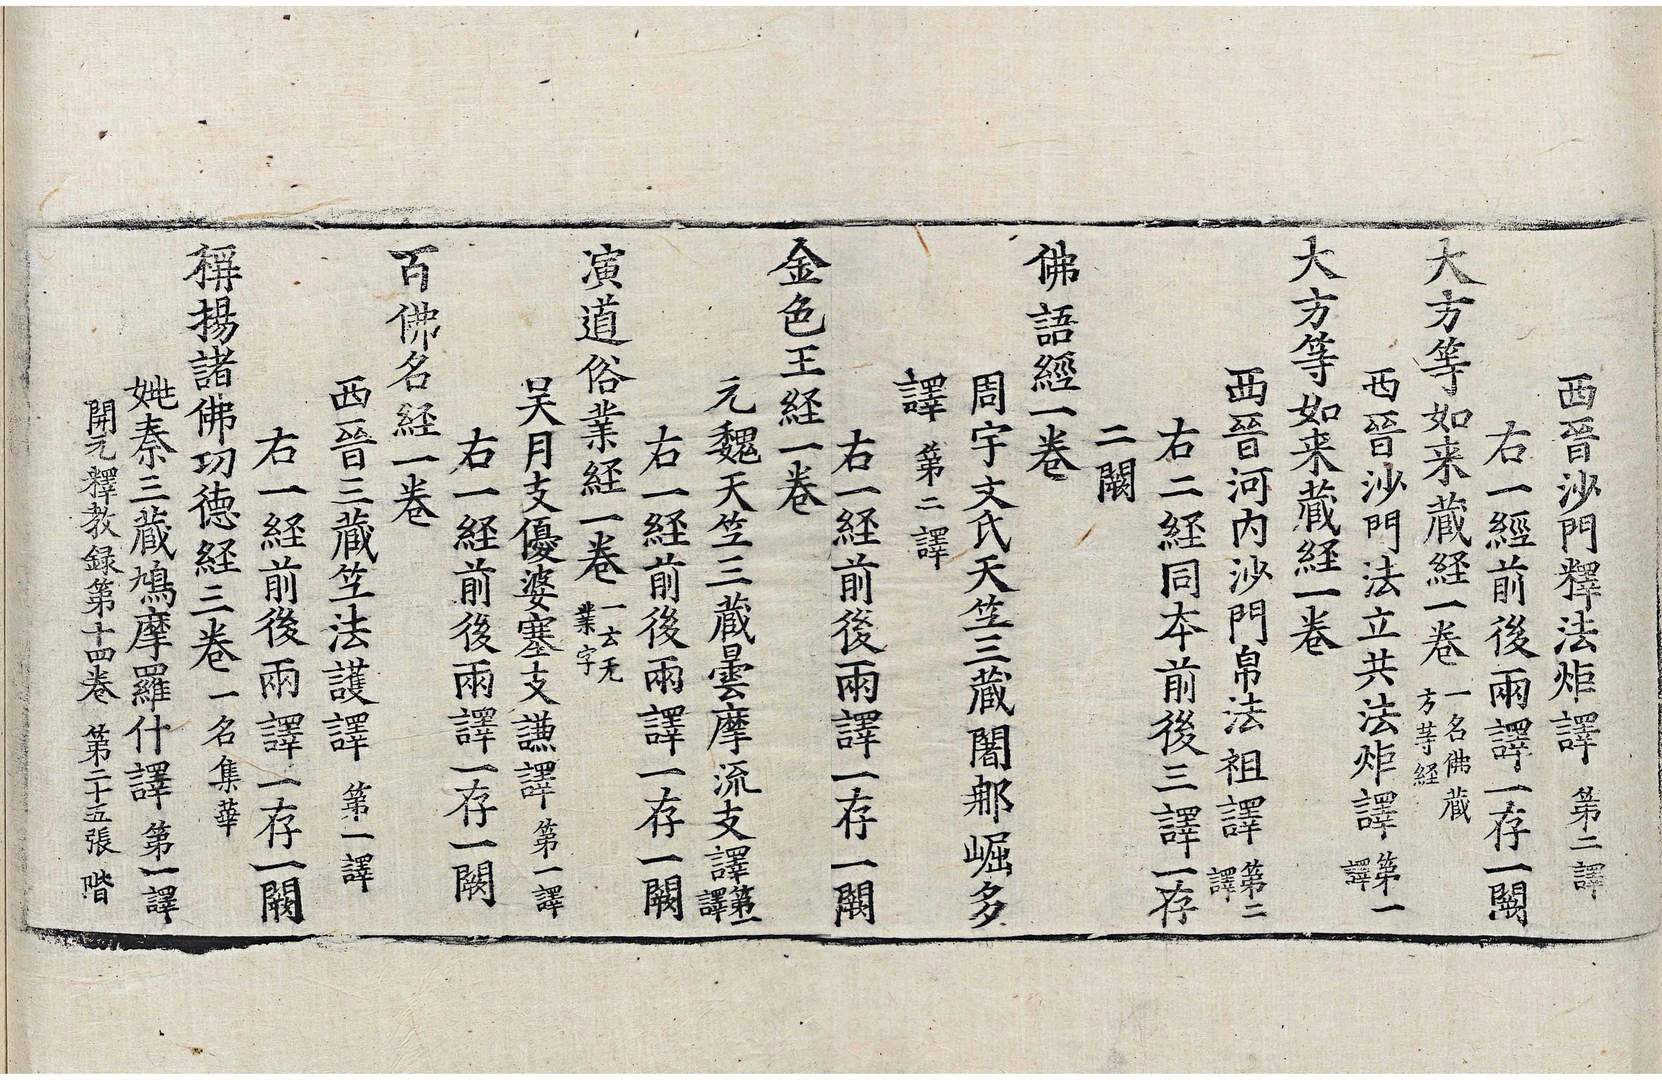 西晉沙門釋法炬譯 第二譯
右一經前後兩譯一存一闕
大方等如来蔵経一卷 一名佛蔵方等経
西晉沙門法立共法炬譯 第一譯
大方等如来蔵経一卷
西晉河內沙門帛法祖譯 第二譯
右二経同本前後三譯一存
二闕
佛語經一卷
周宇文氏天竺三蔵闍那崛多
譯 第二譯
右一経前後兩譯一存一闕
金色王経一卷
元魏天竺三蔵曇摩流支譯 第一譯
右一経前後兩譯一存一闕
演道俗業経一卷 一云无業字
吴月支優婆塞支謙譯 第一譯
右一経前後兩譯一存一闕
百佛名経一卷
西晉三蔵竺法護譯 第一譯
右一経前後兩譯一存一闕
稱揚諸佛功德経三卷 一名集華
姚秦三蔵鳩摩羅什譯 第一譯
開元釋教録第十四卷 第二十五張 階